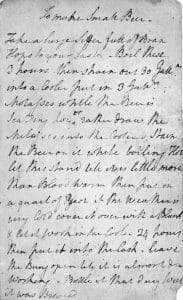 To make Small Beer
Take a large Siffer full of Bran
Hops to your Taste — Boil these
3 hours. Then strain out 30 Gall.ⁿ
into a Cooler put in 3 Gall.ⁿ
Molasses while the Beer is
Scalding hot or rather draw the
Molasses into the Cooler & Strain
the Beer on it while boiling Hot
let this stand till it is little more
than Blood warm then put in
a quart of Yest if the weather is
very Cold cover it over with a Blank
& let it work in the Cooler 24 hours
then put it into the Cask. leave
the Bung open till it is almost done
working — Bottle it that day Week
it was Brewed